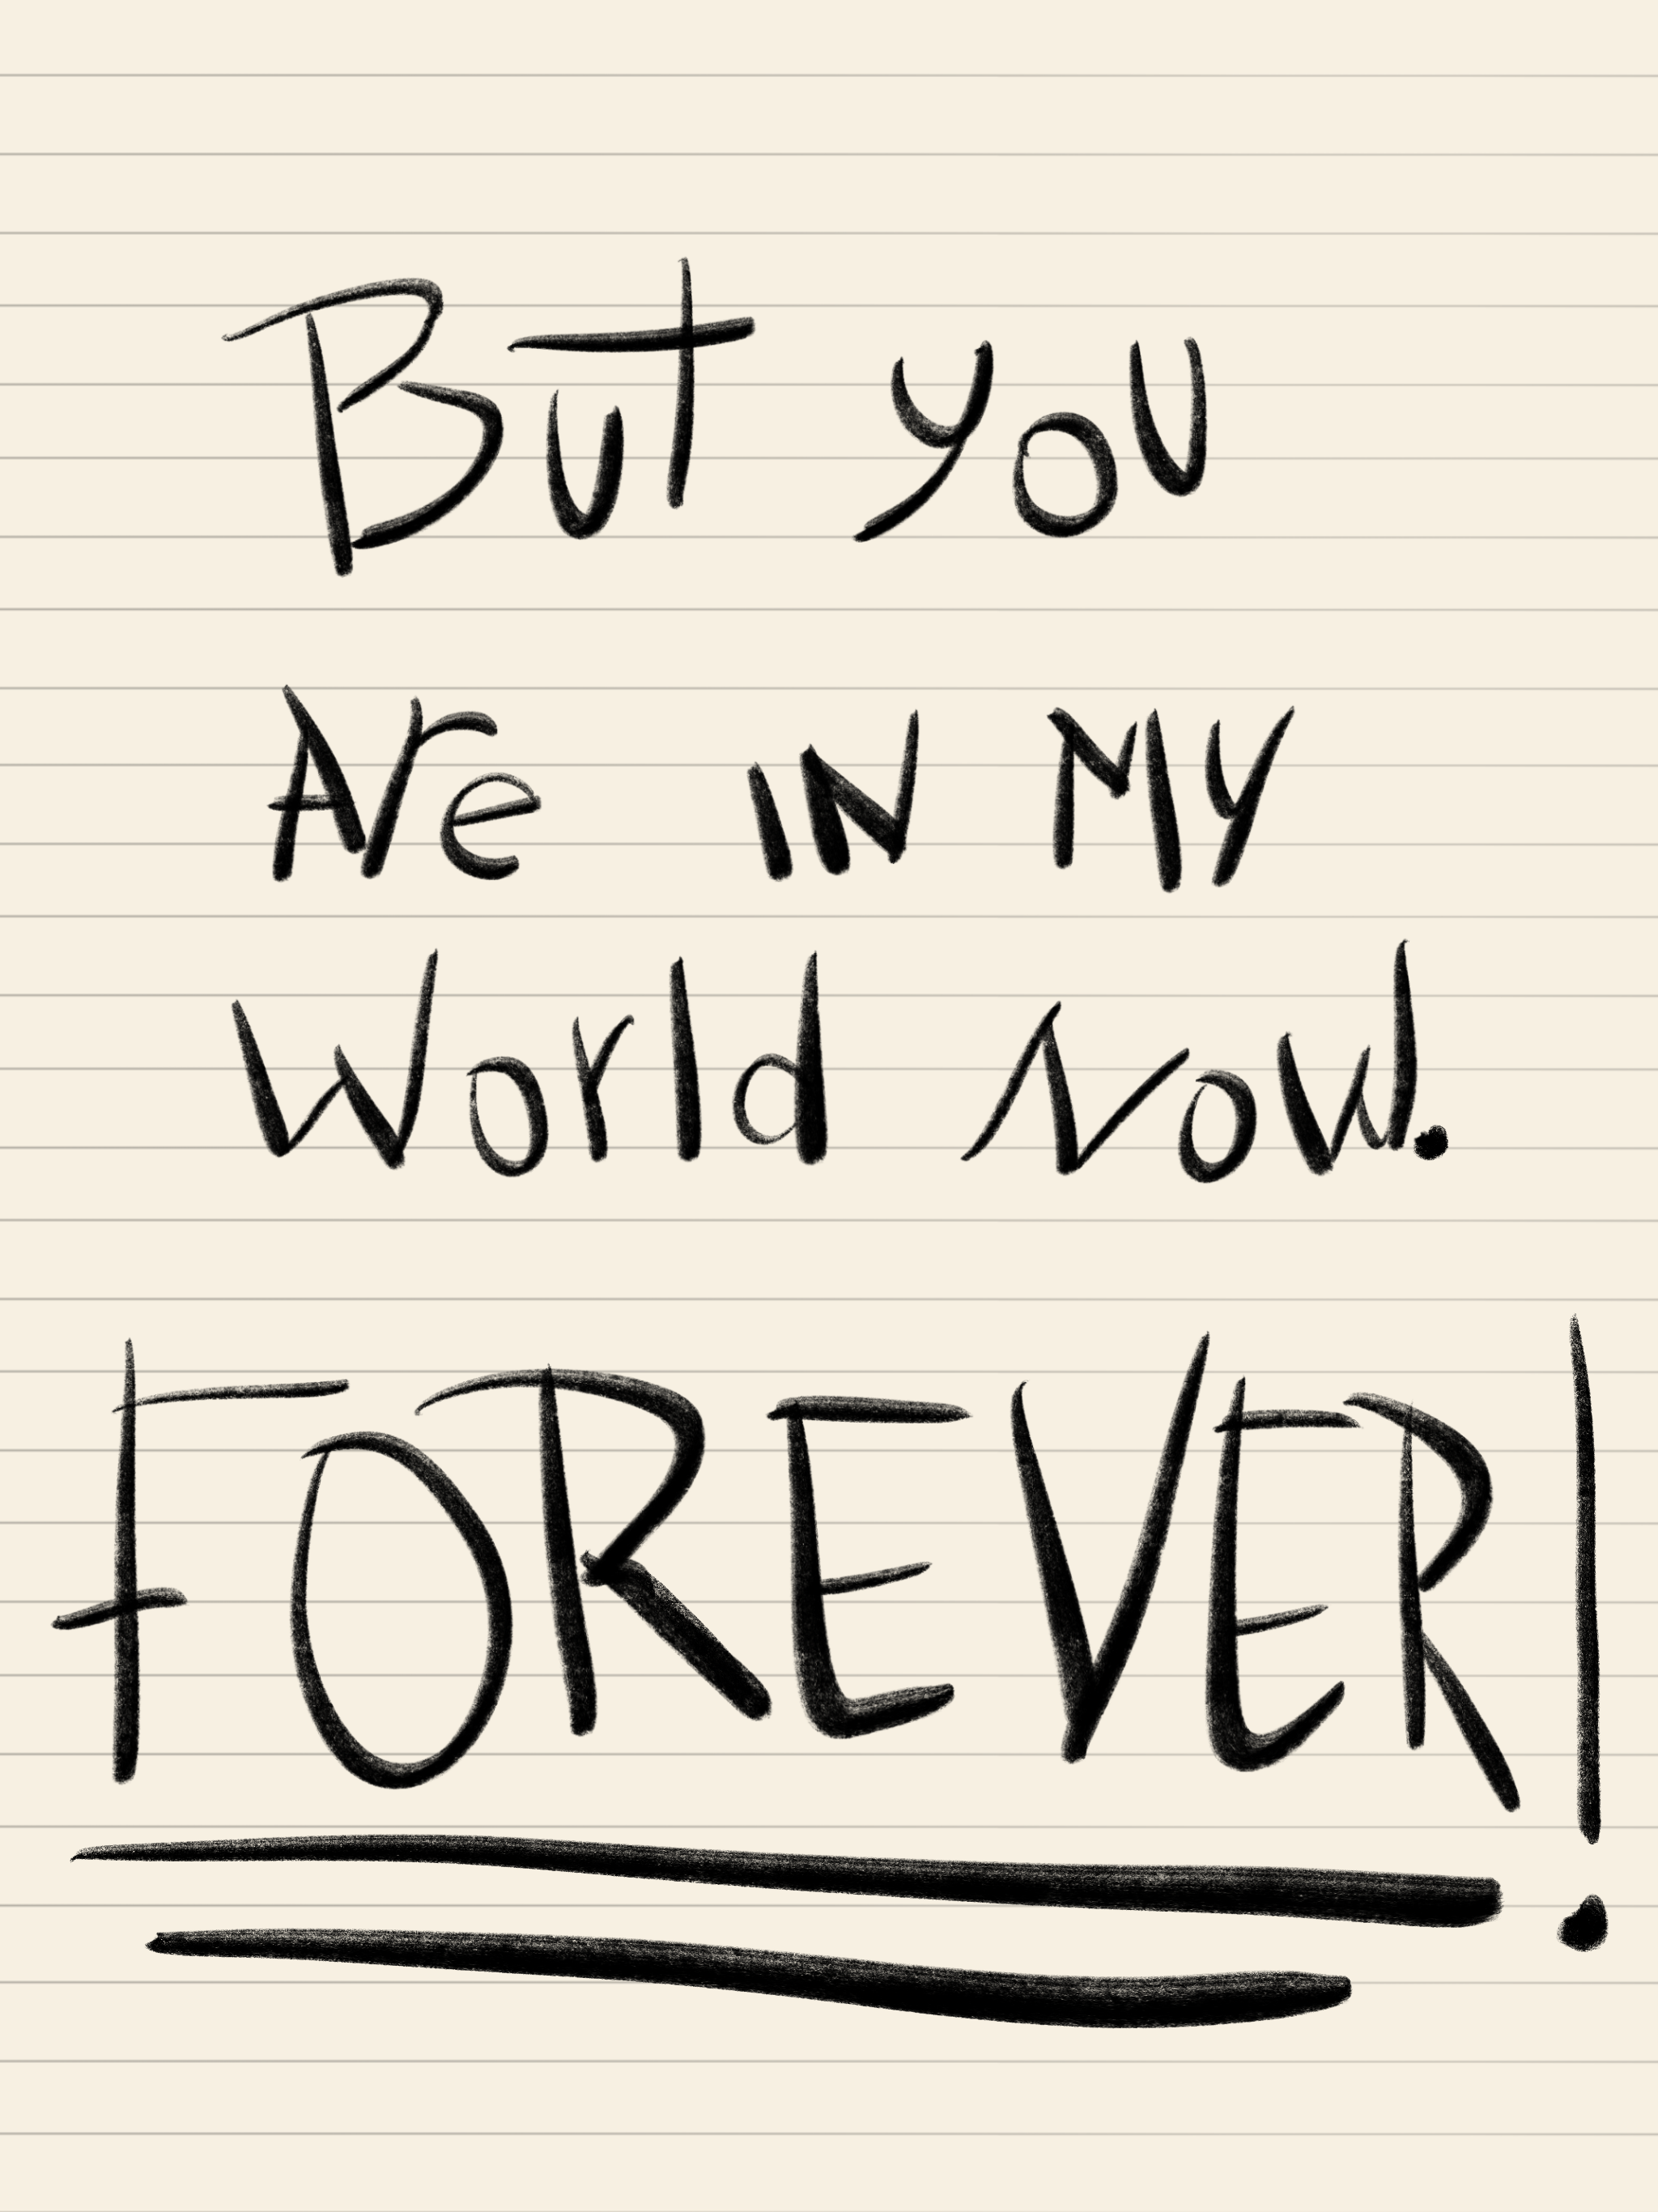 But you
Are IN MY
World Now.
FOREVER!